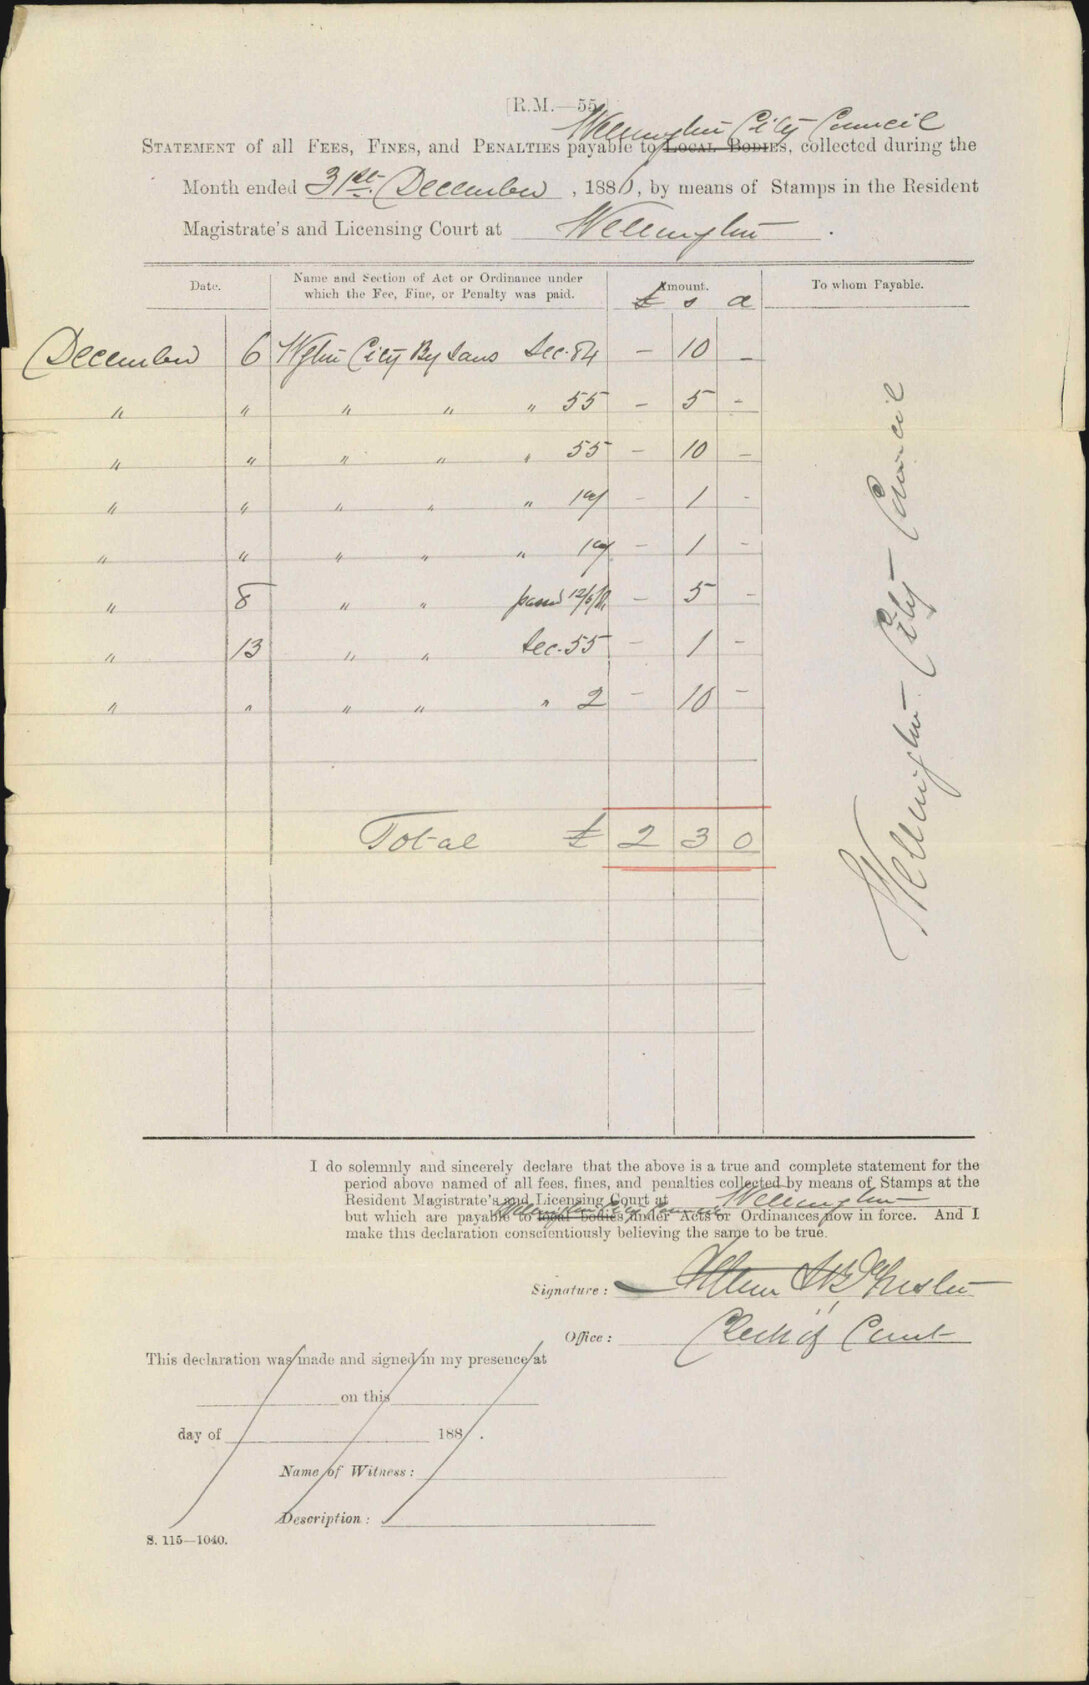 [R.M.—55.]
Wellington City Council
STATEMENT of all FEES, FINES, and PENALTIES payable to LOCAL BODIES, collected during the
Month ended 31st December, 1881, by means of Stamps in the Resident
Magistrate's and Licensing Court at Wellington.
Date. Name and Section of Act or Ordinance under which the Fee, Fine, or Penalty was paid. Amount. To whom Payable.
£ s d
December 6 Wgtn City By Laws Sec. 84 – 10 –
" " " " " 55 – 5 –
" " " " " 55 – 10 –
" " " " " 19 – 1 –
" " " " " 19 – 1 –
" 8 " " passed 12/5/81 – 5 –
" 13 " " Sec. 55 – 1 –
" " " " " 2 – 10 –
Wellington City Council
Total £ 2 3 0
I do solemnly and sincerely declare that the above is a true and complete statement for the
period above named of all fees, fines, and penalties collected by means of Stamps at the
Resident Magistrate's and Licensing Court at Wellington
Wellington City Council
but which are payable to local bodies under Acts or Ordinances now in force. And I
make this declaration conscientiously believing the same to be true.
Signature:
Office: Clerk of Court
This declaration was made and signed in my presence at
on this
day of 188 .
Name of Witness:
Description:
S. 115—1040.